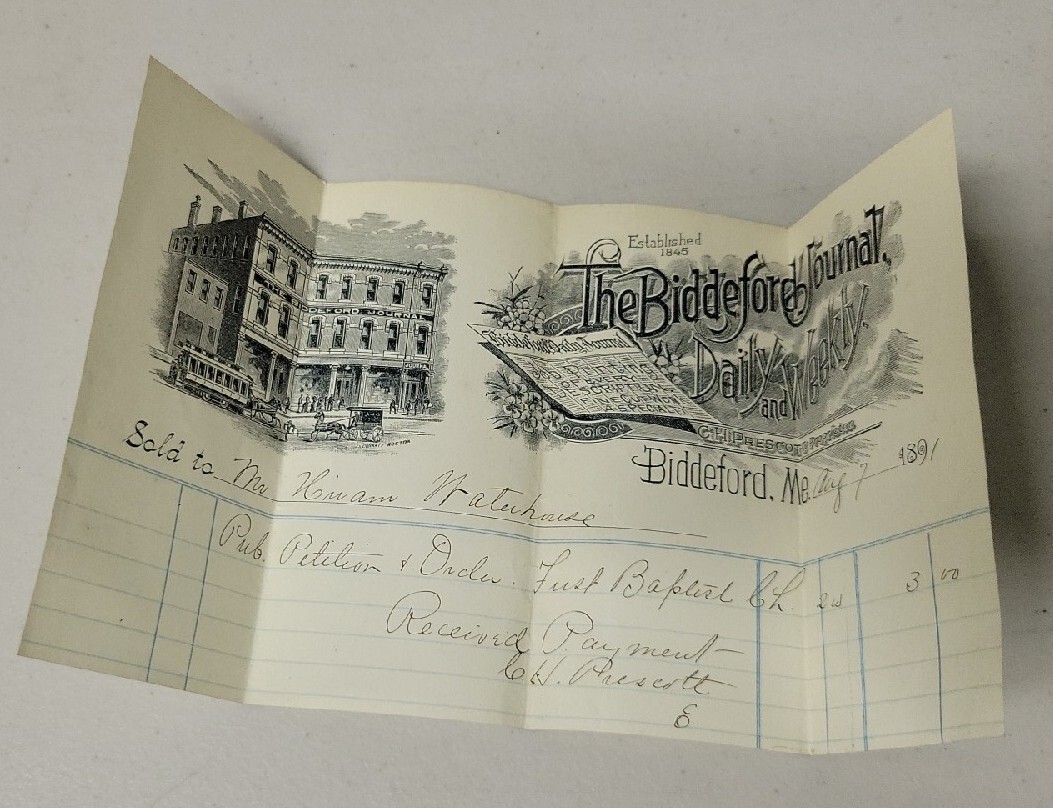 Established
1845
The Biddeford Journal.
Daily and Weekly.
Biddeford Daily Journal
Printing
C.H. PRESCOTT
Biddeford, Me. Aug 7 1891
Sold to Mr Hiram Waterhouse
Pub. Petition & Order. First Baptist Ch. 2w 3 00
Received Payment
C.H. Prescott
E